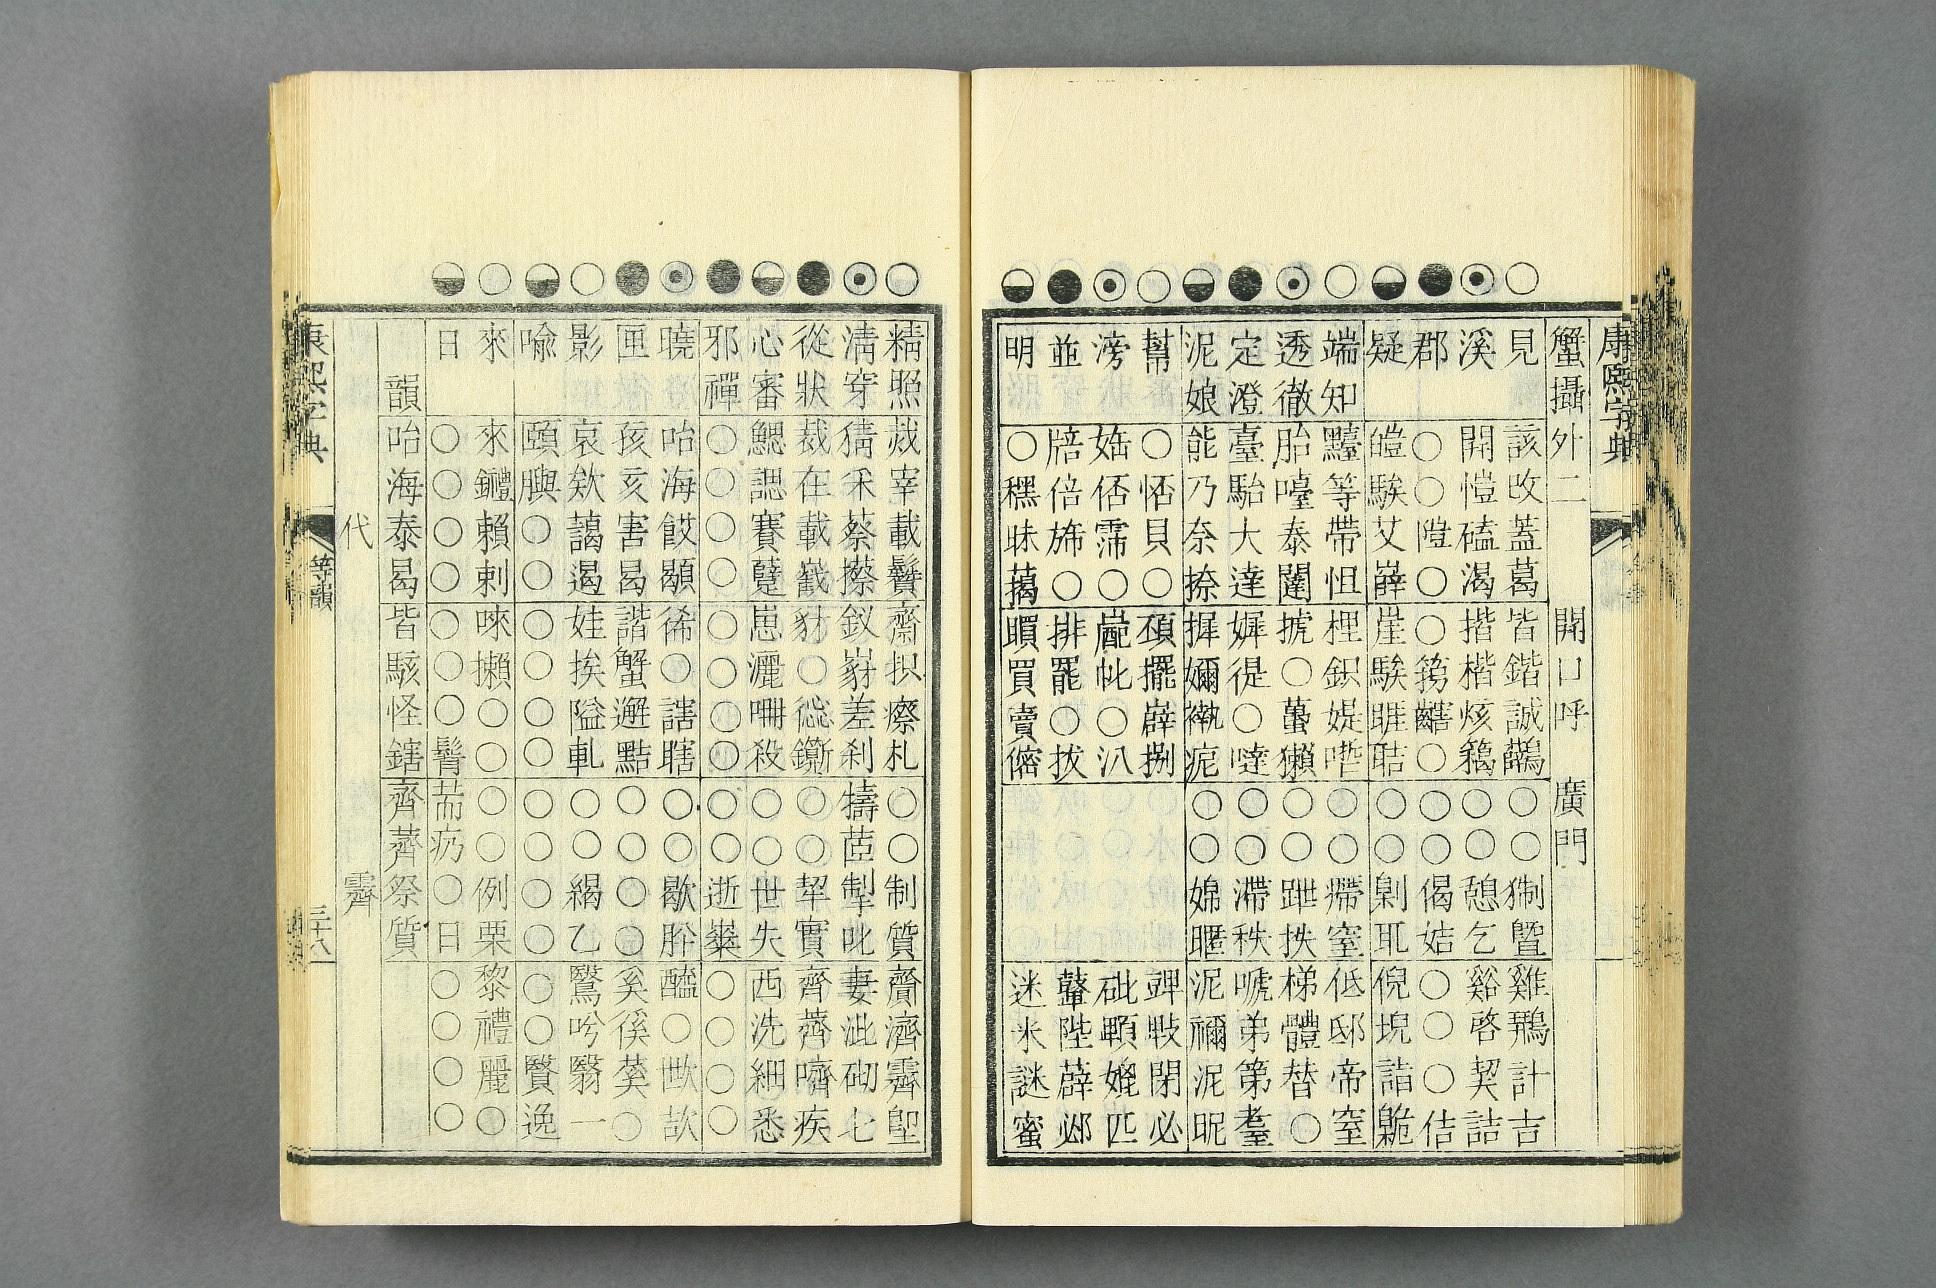 康熙字典
蟹攝外二 開口呼 廣門
見 該改蓋葛 皆鍇誡鶷 ○○猘暨 雞䳏計吉
溪 開愷磕渴 揩楷烗䅥 ○○憩乞 谿啓契詰
郡 ○○隑○ ○箉齸○ ○○偈姞 ○○○佶
疑 皚騃艾嶭 崖騃睚聐 ○○劓耴 倪堄詣臲
端知 等帶怛 ○○㿃窒 低邸帝窒
透徹 胎嚏泰闥 搋○蠆獺 ○○跇抶 梯體替○
定澄 臺駘大達 徥○噠 ○○滯秩 嗁弟第耋
泥娘 能乃奈捺 ○○ 泥禰泥昵
幫 ○㤳貝○ 擺薜捌 閉必
滂 㛅俖霈○ ○汃 匹
並 倍旆○ 排罷○拔 鼙陛薜邲
明 ○穤昧 買賣 迷米謎蜜
精照 哉宰載 齋抧瘵札 ○○制質 齎濟霽堲
清穿 猜采蔡攃 釵差刹 茝掣叱 妻泚砌七
從狀 裁在載巀 豺○鑡 ○○實 齊薺嚌疾
心審 鰓諰賽躠 崽灑殺 ○○世失 西洗細悉
邪禪 ○○○○ ○○○○ ○○逝 ○○○○
曉 咍海餀顯 ○瞎 ○○歇肸 醯○欪
匣 孩亥害曷 諧蟹邂黠 ○○○○ 奚徯○
影 哀欸藹遏 娃挨隘軋 ○○緆乙 鷖吟翳一
喻 頤䑂○○ ○○○○ ○○○○ ○○賢逸
來 來䥯賴剌 唻攋○○ ○○例栗 黎禮麗○
日 ○○○○ ○○○髫 荋疓○日 ○○○○
韻 咍海泰曷 皆駭怪鎋 齊薺祭質
代 霽
康熙字典 等韻 三十八